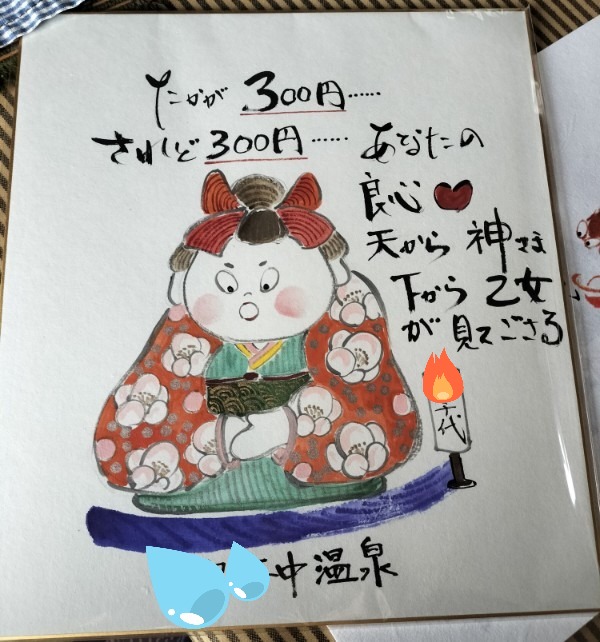 たかが 300円……
されど 300円……
あなたの
良心
天から 神さま
下から 乙女
が 見てござる
千代
中温泉